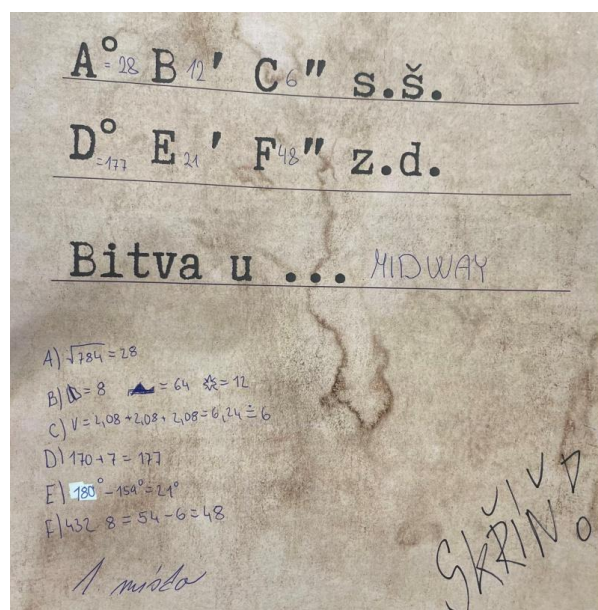 A°=28 B 12' C 6" s.š.
D°=177 E 21' F 48" z.d.
Bitva u ... MIDWAY
A) √784 = 28
B) = 8 = 64 = 12
C) V = 2,08 + 2,08 + 2,08 = 6,24 ≐ 6
D) 170 + 7 = 177
E) 180° - 159° = 21°
F) 432 8 = 54 - 6 = 48
SKŘÍŇ D
1. místo